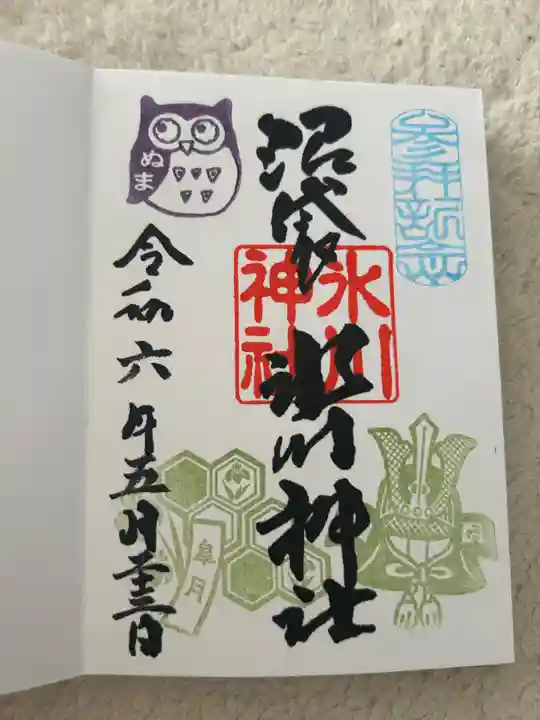 参拝祈念
沼袋 氷川神社
氷川
神社
ぬま
令和六年五月二十三日
皐月